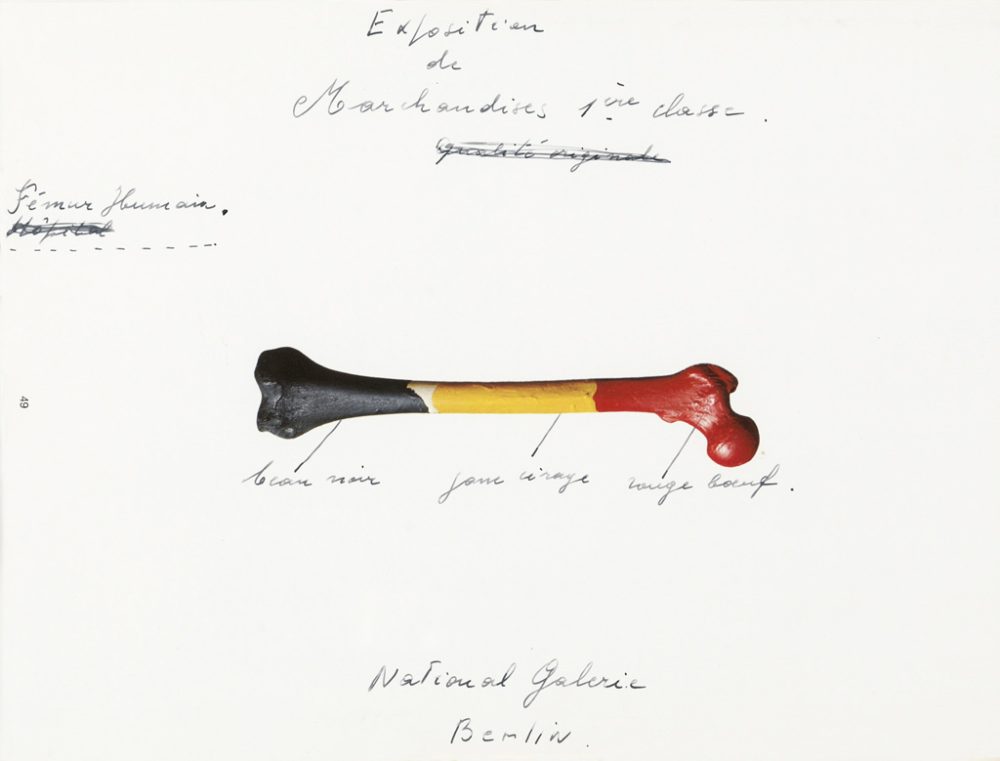 Exposition
de
Marchandises 1ère classe.
qualité originale
Fémur Humain.
Hôpital
49
beau noir jaune cirage rouge bœuf.
National Galerie
Berlin.